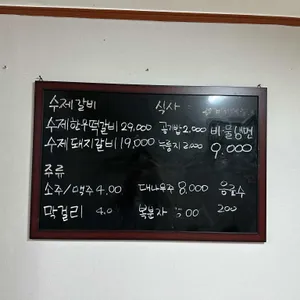 수제갈비 식사
수제한우떡갈비 29,000 공기밥 2.000 비·물냉면
수제돼지갈비 19,000 누룽지 2.000 9.000
주류
소주/맥주 4.00 대나무주 8.000 음료수
막걸리 4.0 복분자 00 200